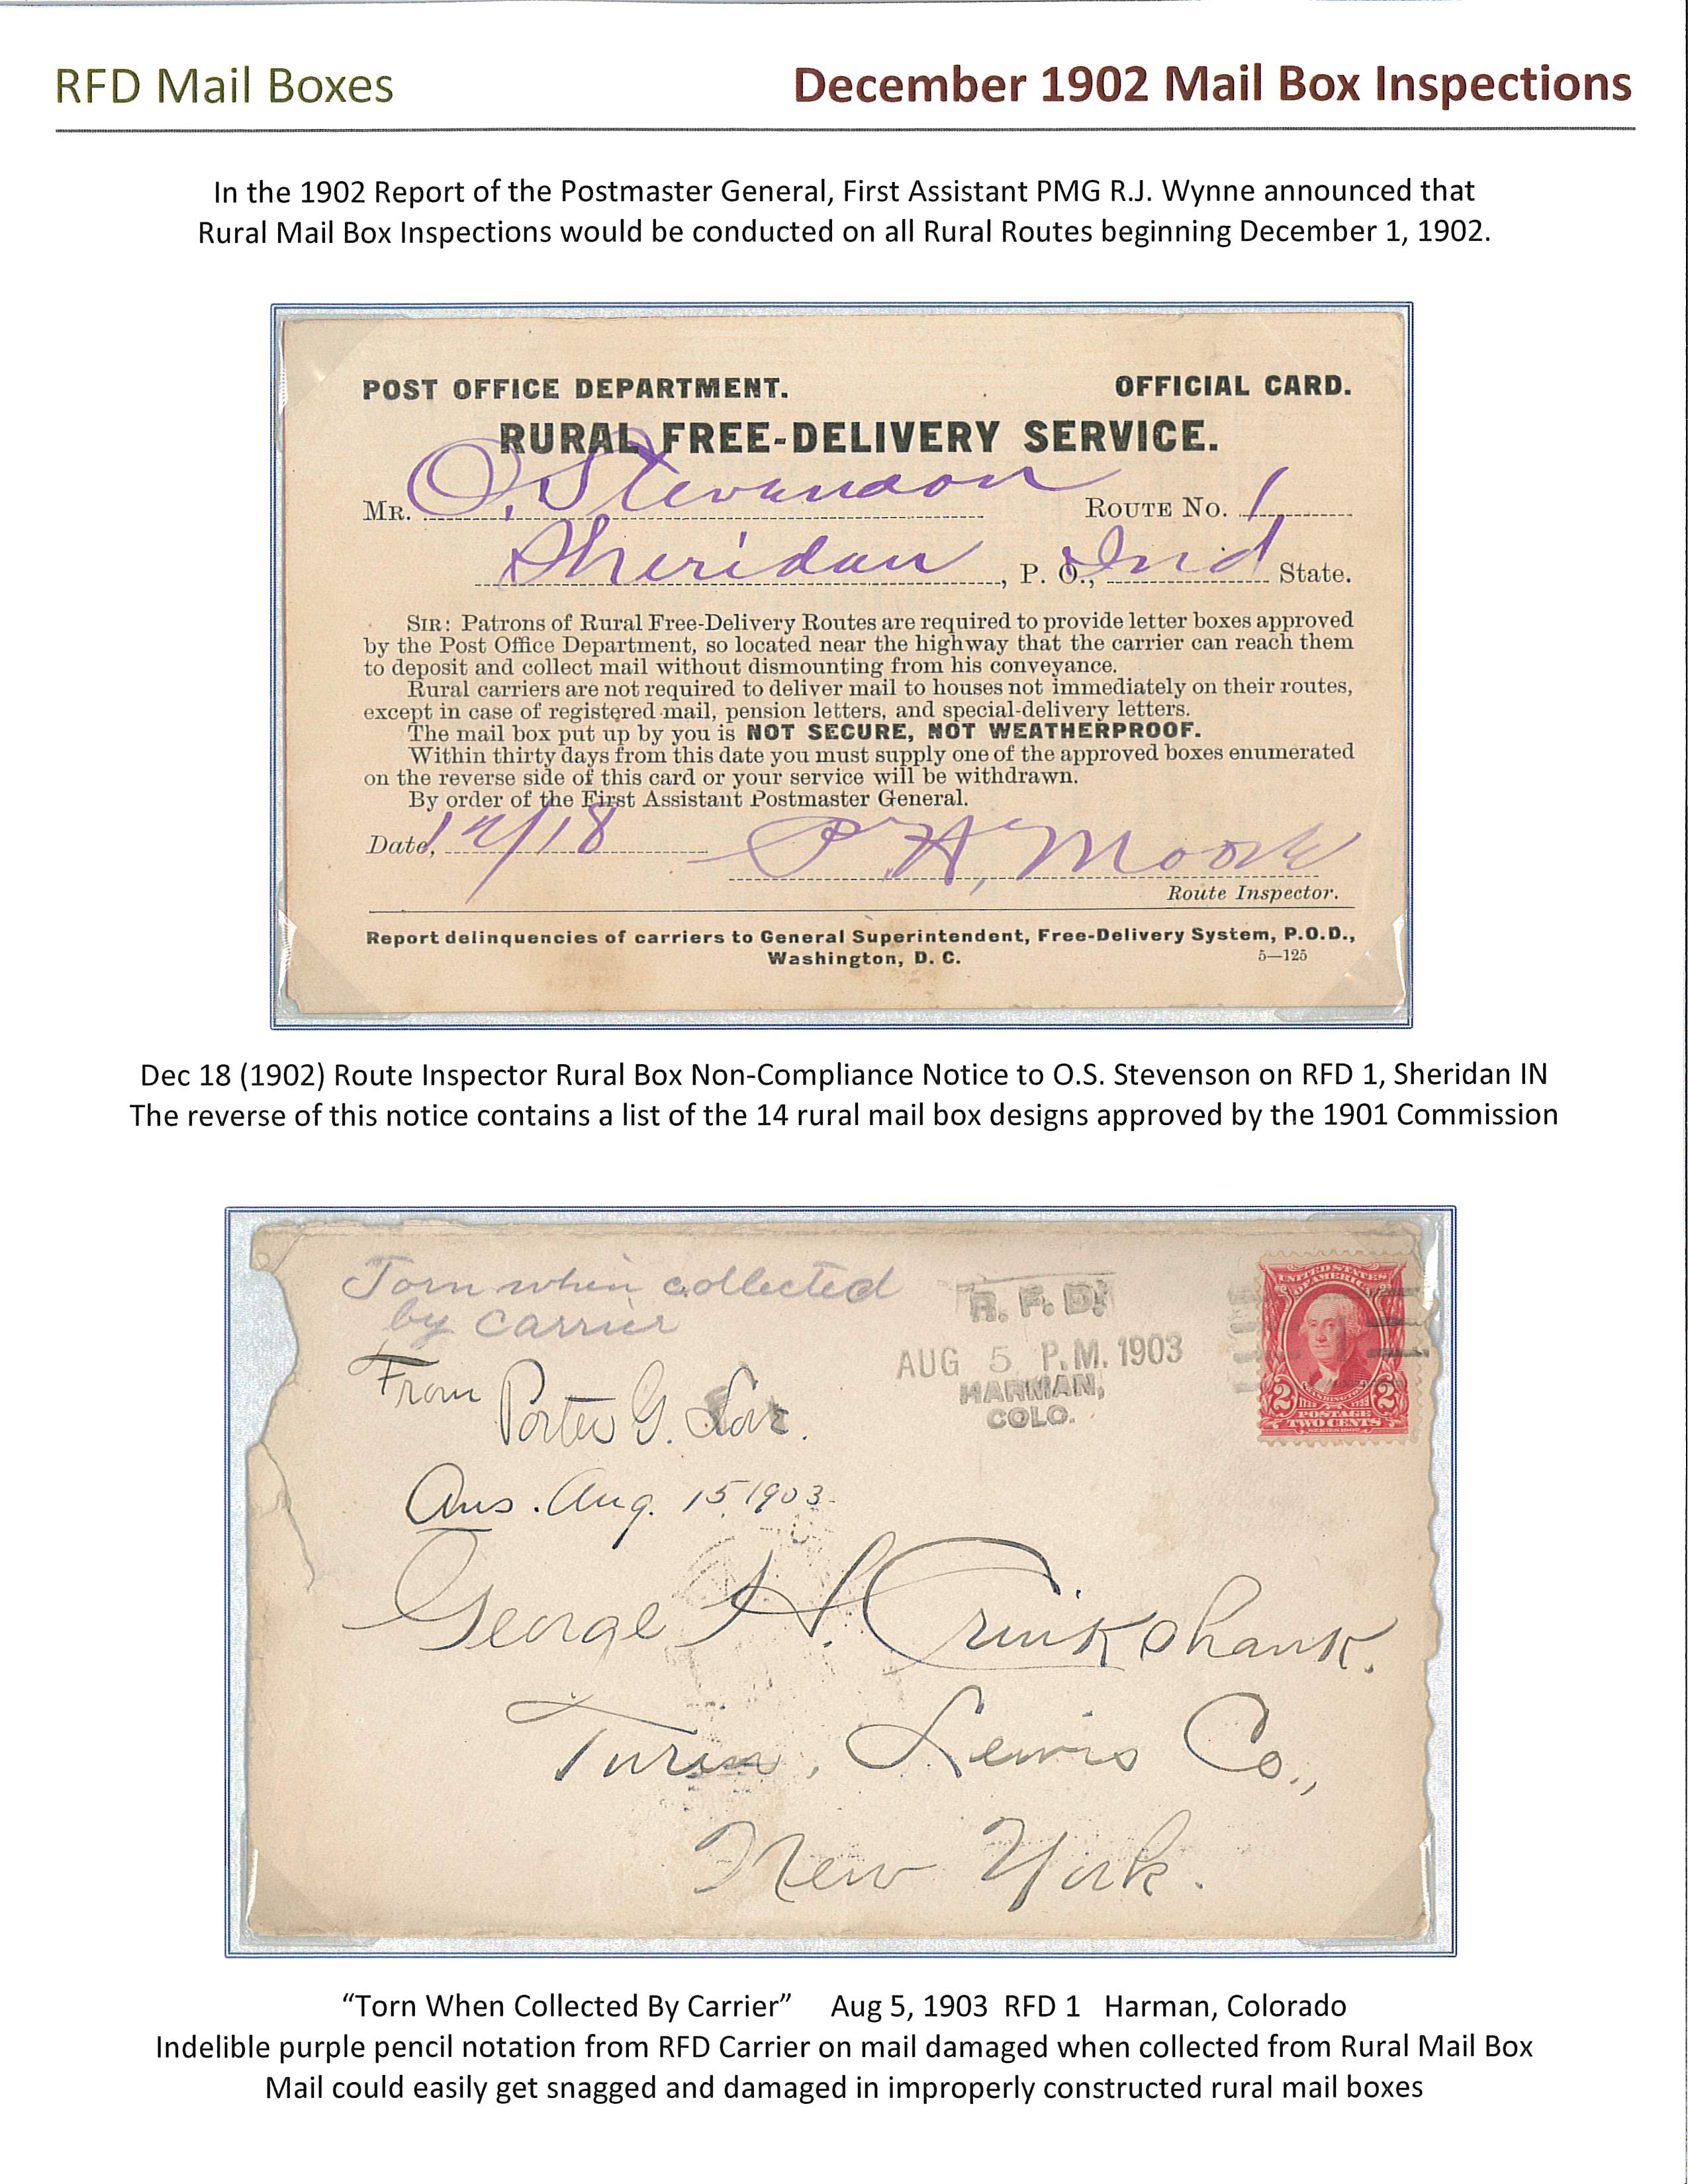 RFD Mail Boxes
December 1902 Mail Box Inspections
In the 1902 Report of the Postmaster General, First Assistant PMG R.J. Wynne announced that
Rural Mail Box Inspections would be conducted on all Rural Routes beginning December 1, 1902.
POST OFFICE DEPARTMENT. OFFICIAL CARD.
RURAL FREE-DELIVERY SERVICE.
MR. O. Stevenson ROUTE NO. 1
Sheridan, P. O., Ind State.
SIR: Patrons of Rural Free-Delivery Routes are required to provide letter boxes approved
by the Post Office Department, so located near the highway that the carrier can reach them
to deposit and collect mail without dismounting from his conveyance.
Rural carriers are not required to deliver mail to houses not immediately on their routes,
except in case of registered mail, pension letters, and special-delivery letters.
The mail box put up by you is NOT SECURE, NOT WEATHERPROOF.
Within thirty days from this date you must supply one of the approved boxes enumerated
on the reverse side of this card or your service will be withdrawn.
By order of the First Assistant Postmaster General.
Date, 12/18 P. H. Moore
Route Inspector.
Report delinquencies of carriers to General Superintendent, Free-Delivery System, P.O.D.,
Washington, D. C. 5—125
Dec 18 (1902) Route Inspector Rural Box Non-Compliance Notice to O.S. Stevenson on RFD 1, Sheridan IN
The reverse of this notice contains a list of the 14 rural mail box designs approved by the 1901 Commission
Torn when collected
by Carrier
R. F. D.
AUG 5 P.M. 1903
HARMAN,
COLO.
UNITED STATES
OF AMERICA
WASHINGTON
2 2
POSTAGE
TWO CENTS
SERIES 1902
From Porter G.
Ans. Aug. 15, 1903.
George H. Cruikshank.
Turin, Lewis Co.,
New York.
“Torn When Collected By Carrier” Aug 5, 1903 RFD 1 Harman, Colorado
Indelible purple pencil notation from RFD Carrier on mail damaged when collected from Rural Mail Box
Mail could easily get snagged and damaged in improperly constructed rural mail boxes